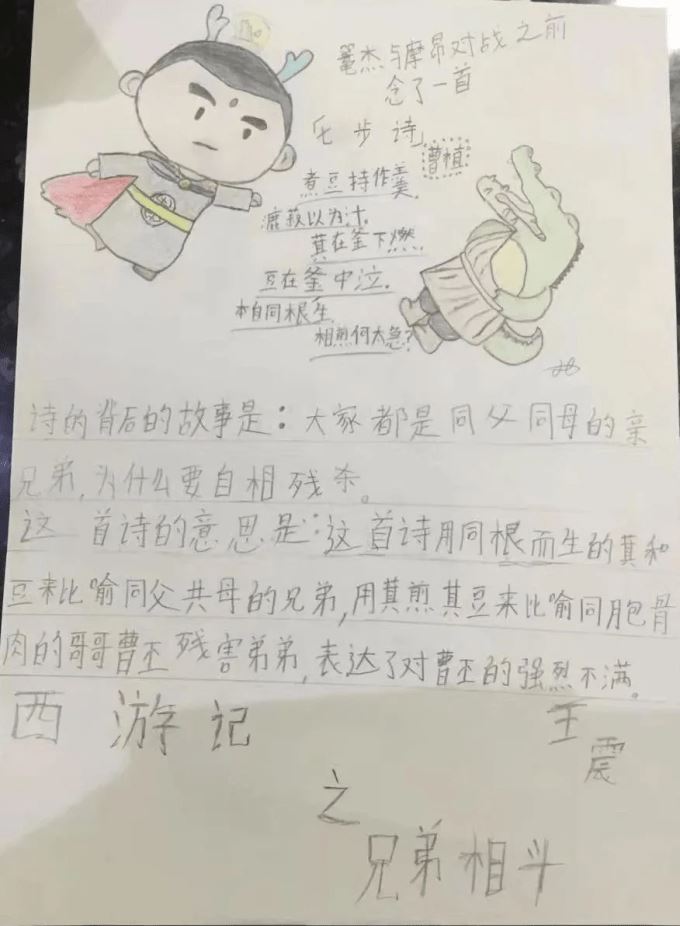 鼍杰与摩昂对战之前
念了一首
「七步诗」
曹植
煮豆持作羹,
漉菽以为汁.
萁在釜下燃.
豆在釜中泣.
本自同根生,
相煎何太急?
诗的背后的故事是:大家都是同父同母的亲
兄弟,为什么要自相残杀。
这首诗的意思是:这首诗用同根而生的萁和
豆来比喻同父共母的兄弟,用萁煎其豆来比喻同胞骨
肉的哥哥曹丕残害弟弟,表达了对曹丕的强烈不满。
西游记
王震
之
兄弟相斗